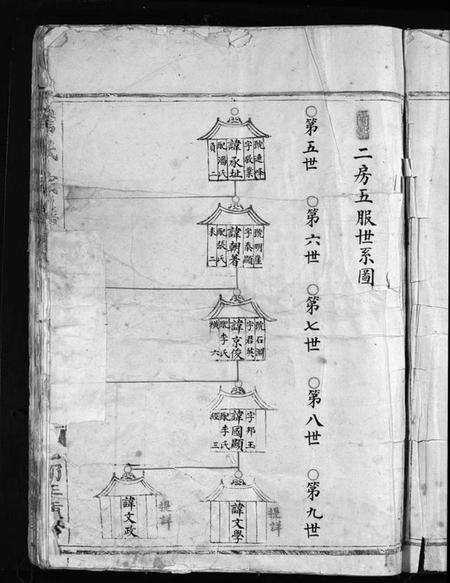 二房五服世系圖
○第五世
○第六世
○第七世
○第八世
○第九世
字敬業
諱承址
配潘氏
貞二
號明崖
字泰顯
諱朝著
配張氏
長二
號石瀾
字君英
諱京俊
配李氏
橫六
字邦玉
諱國顯
配李氏
經三
提詳
諱文學
提詳
諱文政